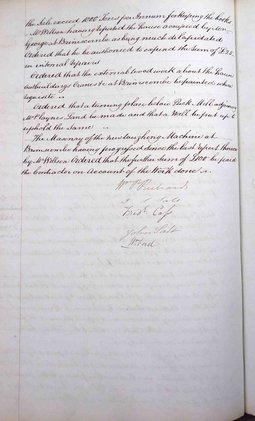 the Sale exceed 1000 Tons per Annum for keeping the books
Mr Wilson having reported the House occupied by
George at Brimscombe as being much dilapidated
Ordered that he be authorized to expend the Sum of £32
in internal repairs
Ordered that the external wood work about the Houses
Outbuildings Cranes &c at Brimscombe be painted where
requisite
Ordered that a turning place below Pack Mill adjoining
Land be made and that a Wall be put up to
uphold the same
The Masonry of the new Weighing Machine at
Brimscombe having progressed since the last report thereon
by Mr Wilson Ordered that the further Sum of £100 be paid
the Contractor on Account of the Work done
John Salt